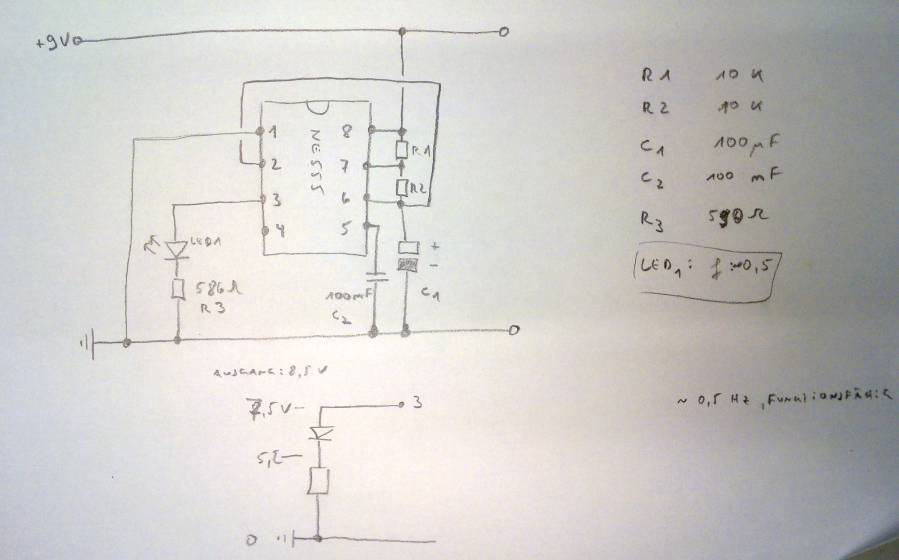 +9V
R1 10K
R2 10K
C1 100µF
C2 100 mF
R3 590Ω
LED1: f ~0,5
NE555
1 8
2 7
3 6
4 5
R1
R2
LED1
586Ω
R3
100mF
C2
+
-
C1
AUSGANG: 8,5 V
~ 0,5 Hz, FUNKTIONSFÄHIG
7,5V
3
0